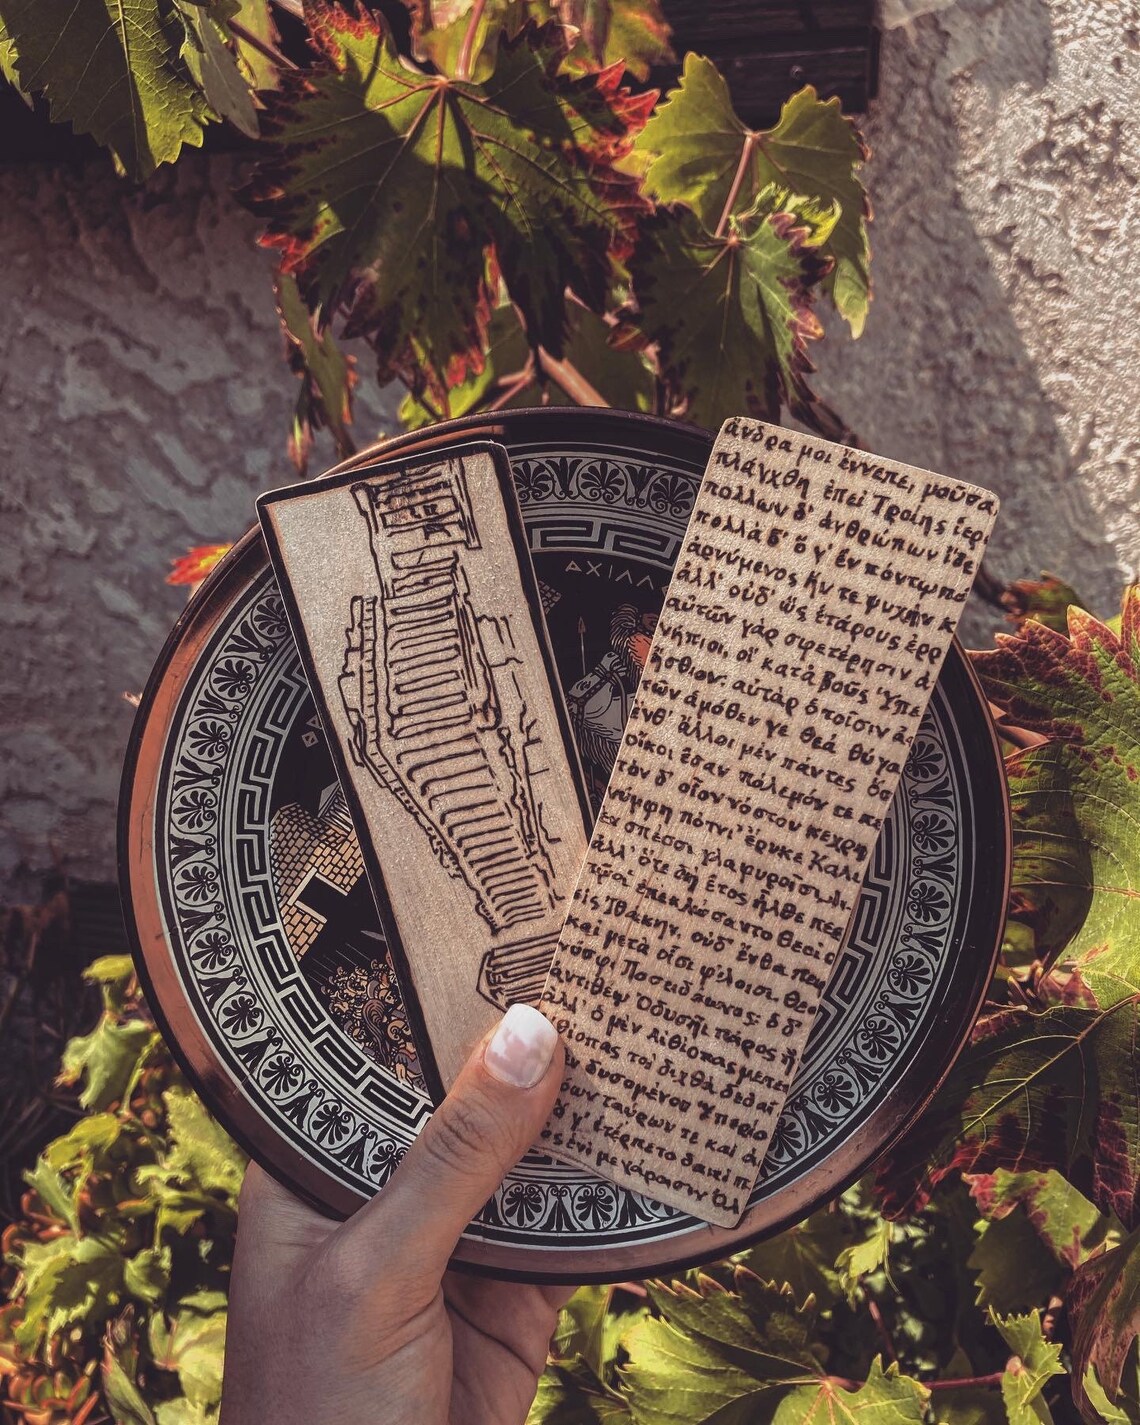 ΑΧΙΛΛ
άνδρα μοι ἔννεπε, μοῦσα
πλάγχθη ἐπεὶ Τροίης ἱερ
πολλων δ' ἀνθρώπων ἴδε
πολλὰ δ' ὅ γ' ἐν πόντῳ πα
αρνύμενος ἥν τε ψυχὴν κ
ἀλλ' οὐδ' ὣς ἑτάρους ἐρρ
αὐτῶν γὰρ σφετέρησιν ἀ
νήπιοι, οἳ κατὰ βοῦς Ὑπε
ἤσθιον· αὐτὰρ ὁ τοῖσιν ἀ
τῶν ἁμόθεν γε θεά θύγα
ἔνθ' ἄλλοι μὲν πάντες ὅσ
οἴκοι ἔσαν πόλεμόν τε πε
τὸν δ' οἶον νόστου κεχρη
νύμφη πότνι' ἔρυκε Καλυ
ἐν σπέσσι γλαφυροῖσι, λι
ἀλλ' ὅτε δὴ ἔτος ἦλθε πε
τῷ οἱ ἐπεκλώσαντο θεοὶ ο
εἰς Ἰθάκην, οὐδ' ἔνθα πεφ
καὶ μετὰ οἷσι φίλοισι. θεο
νόσφι Ποσειδάωνος· ὁ δ'
ἀντιθέῳ Ὀδυσῆι πάρος ἣ
ἀλλ' ὁ μὲν Αἰθίοπας μετε
θίοπας τοὶ διχθὰ δεδαί
ἳν δυσομένου Ὑπερίο
όων ταύρων τε καὶ ἀ
ὅ γ' ἐτέρπετο δαιτὶ π
ὸς ἐνὶ μεγάροισιν Ὀλ